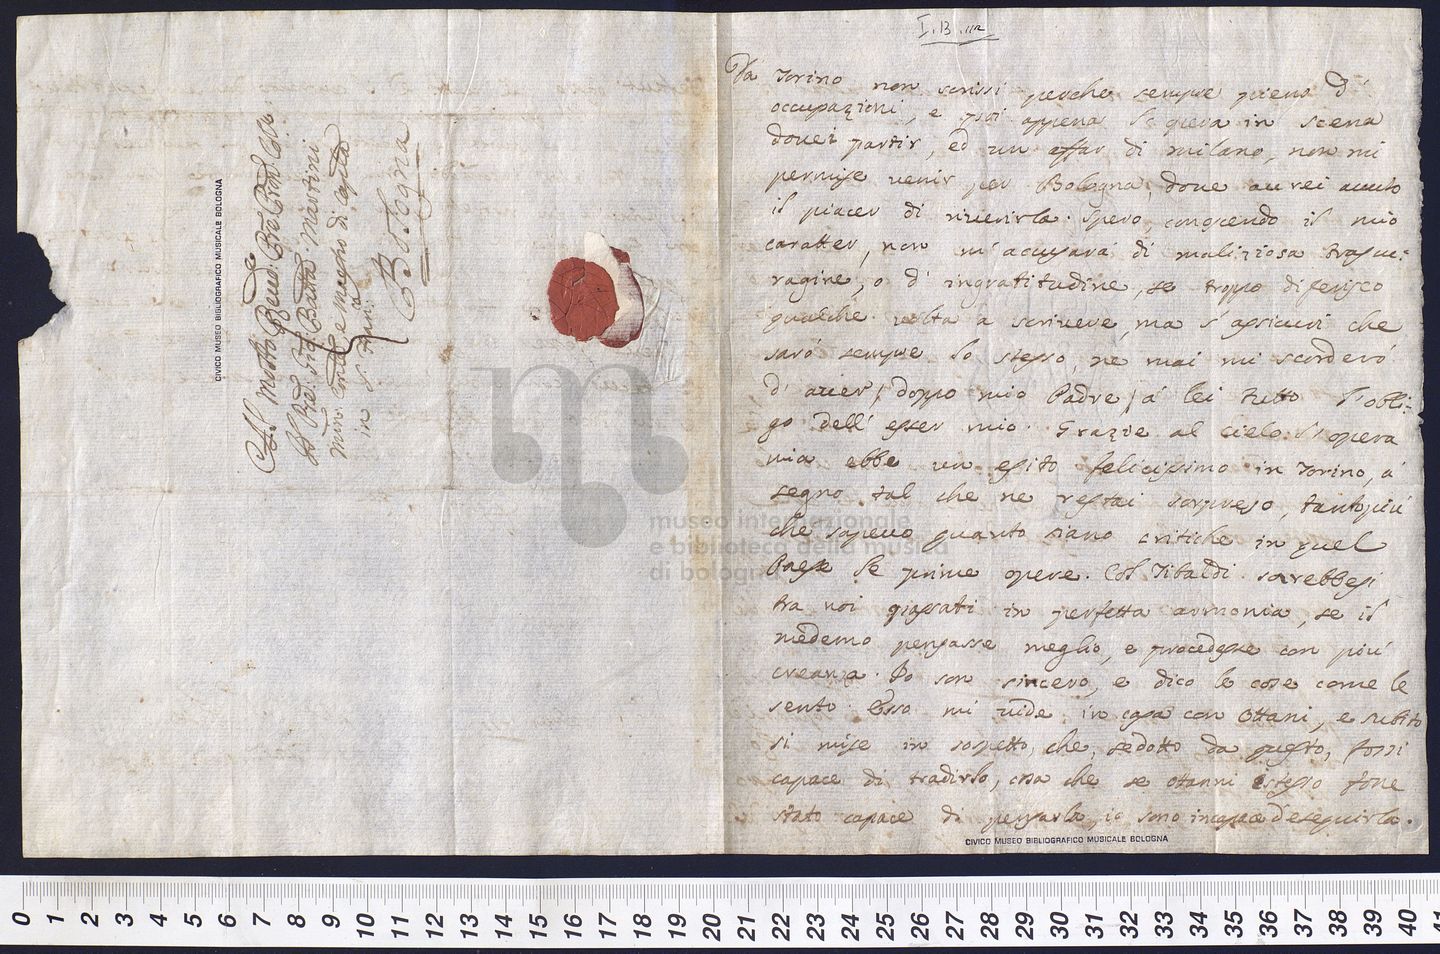 I. B. 112
Da Torino non scrissi perche sempre pieno d'
occupazioni, e poi appena l'opera in scena
dovei partir, ed un affar di milano, non mi
permise venir per Bologna, dove aurei auuto
il piacer di riuerirla. Spero, conoscendo il mio
caratter, non m'accuserà di maliziosa trascu:
ragine, o d'ingratitudine, se troppo diferisco
qualche volta a scriuere, ma s'assicuri che
sarò sempre lo stesso, ne mai mi scorderò
d'auer, doppo mio Padre, à lei tutto l'obli-
go dell'esser mio. Grazie al cielo l'opera
mia ebbe un esito felicissimo in Torino, à
segno tal che ne restai sorpreso, tantopiù
che sapeuo quanto siano critiche in quel
Paese le prime opere. Col Tibaldi sarebbesi
tra noi passati in perfetta armonia, se il
medemo pensasse meglio, e procedesse con più
creanza. Io son sincero, e dico le cose come le
sento. Esso mi uide in casa con Ottani, e subito
si mise in sospetto, che, sedotto da questo, fossi
capace di tradirlo, cosa che se Ottanni istesso fosse
stato capace di pensarla, io sono incapace d'eseguirla.
CIVICO MUSEO BIBLIOGRAFICO MUSICALE BOLOGNA
Al Molto Reuđo Pre Pron Col.
Il Pre Gio Batta Martini
Min: Conle e Maestro di capella
in S. Franco
Bologna
CIVICO MUSEO BIBLIOGRAFICO MUSICALE BOLOGNA
museo internazionale
e biblioteca della musica
di bologna
0 1 2 3 4 5 6 7 8 9 10 11 12 13 14 15 16 17 18 19 20 21 22 23 24 25 26 27 28 29 30 31 32 33 34 35 36 37 38 39 40 41